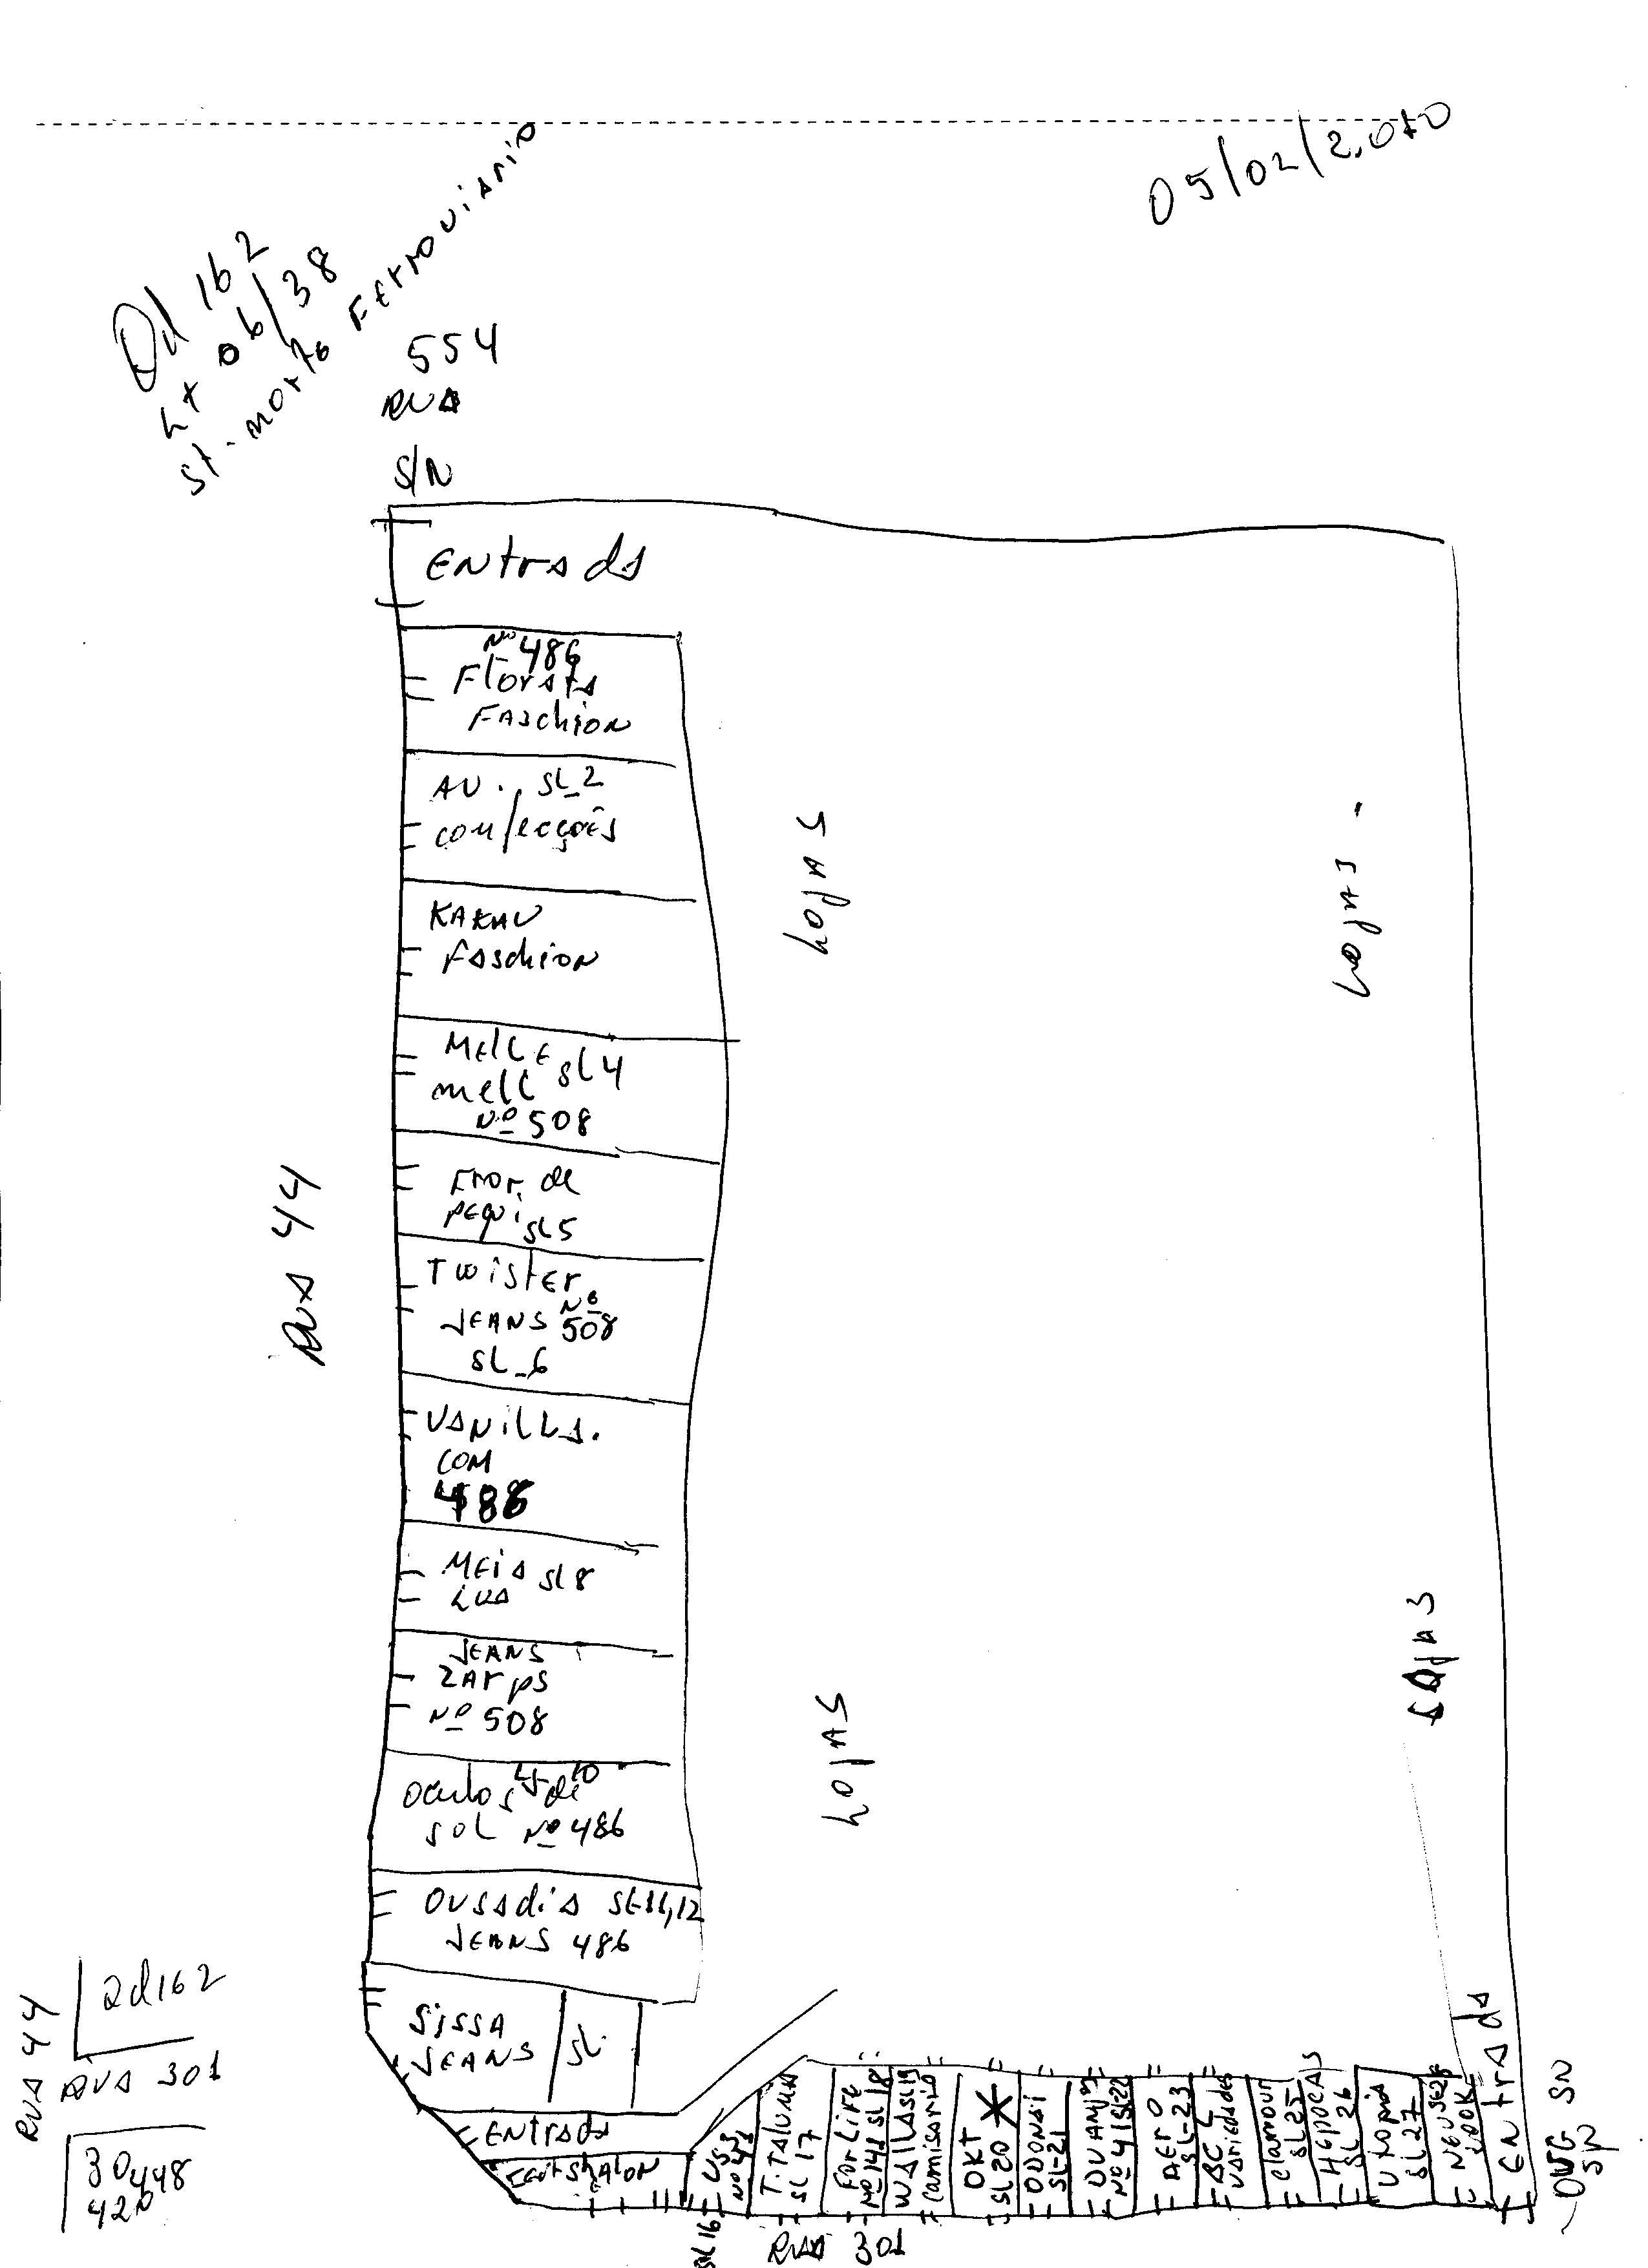 05/02/2.010
Qd 162
Lt 06/38
St. norte Ferroviario
554
RUA
S/N
Entrada
Nº 486
Florata
Faschion
AV. SL_2
confecções
KAKAU
Faschion
MEll E
mell SL 4
Nº 508
Fror. de
pequi SL5
Twister
JEANS Nº 508
SL_6
VANILLA.
COM
486
MEIA SL 8
LUA
JEANS
ZARPS
Nº 508
Oculos de
SOL Nº 486
OUSADIA SL-11,12
JEANS 486
SISSA
JEANS
SL
ENtrada
RUA 44
LOJAS
LOJAS
LOJAS
LOJAS
SL 16
SL 17
For Life
Nº 141 SL 18
WAILA SL 19
Camisaria
OKT
SL 20
ODONAI
SL-21
DUANJO
Nº 41 SL 22
AERO
SL-23
ABC
variedades
Glamour
SL 25
HEPOCAS
SL 26
Utopia
SL 27
NEW
LOOK
ENtrada
SN
RUA 301
RUA 44
Qd 162
RUA 301
30448
420